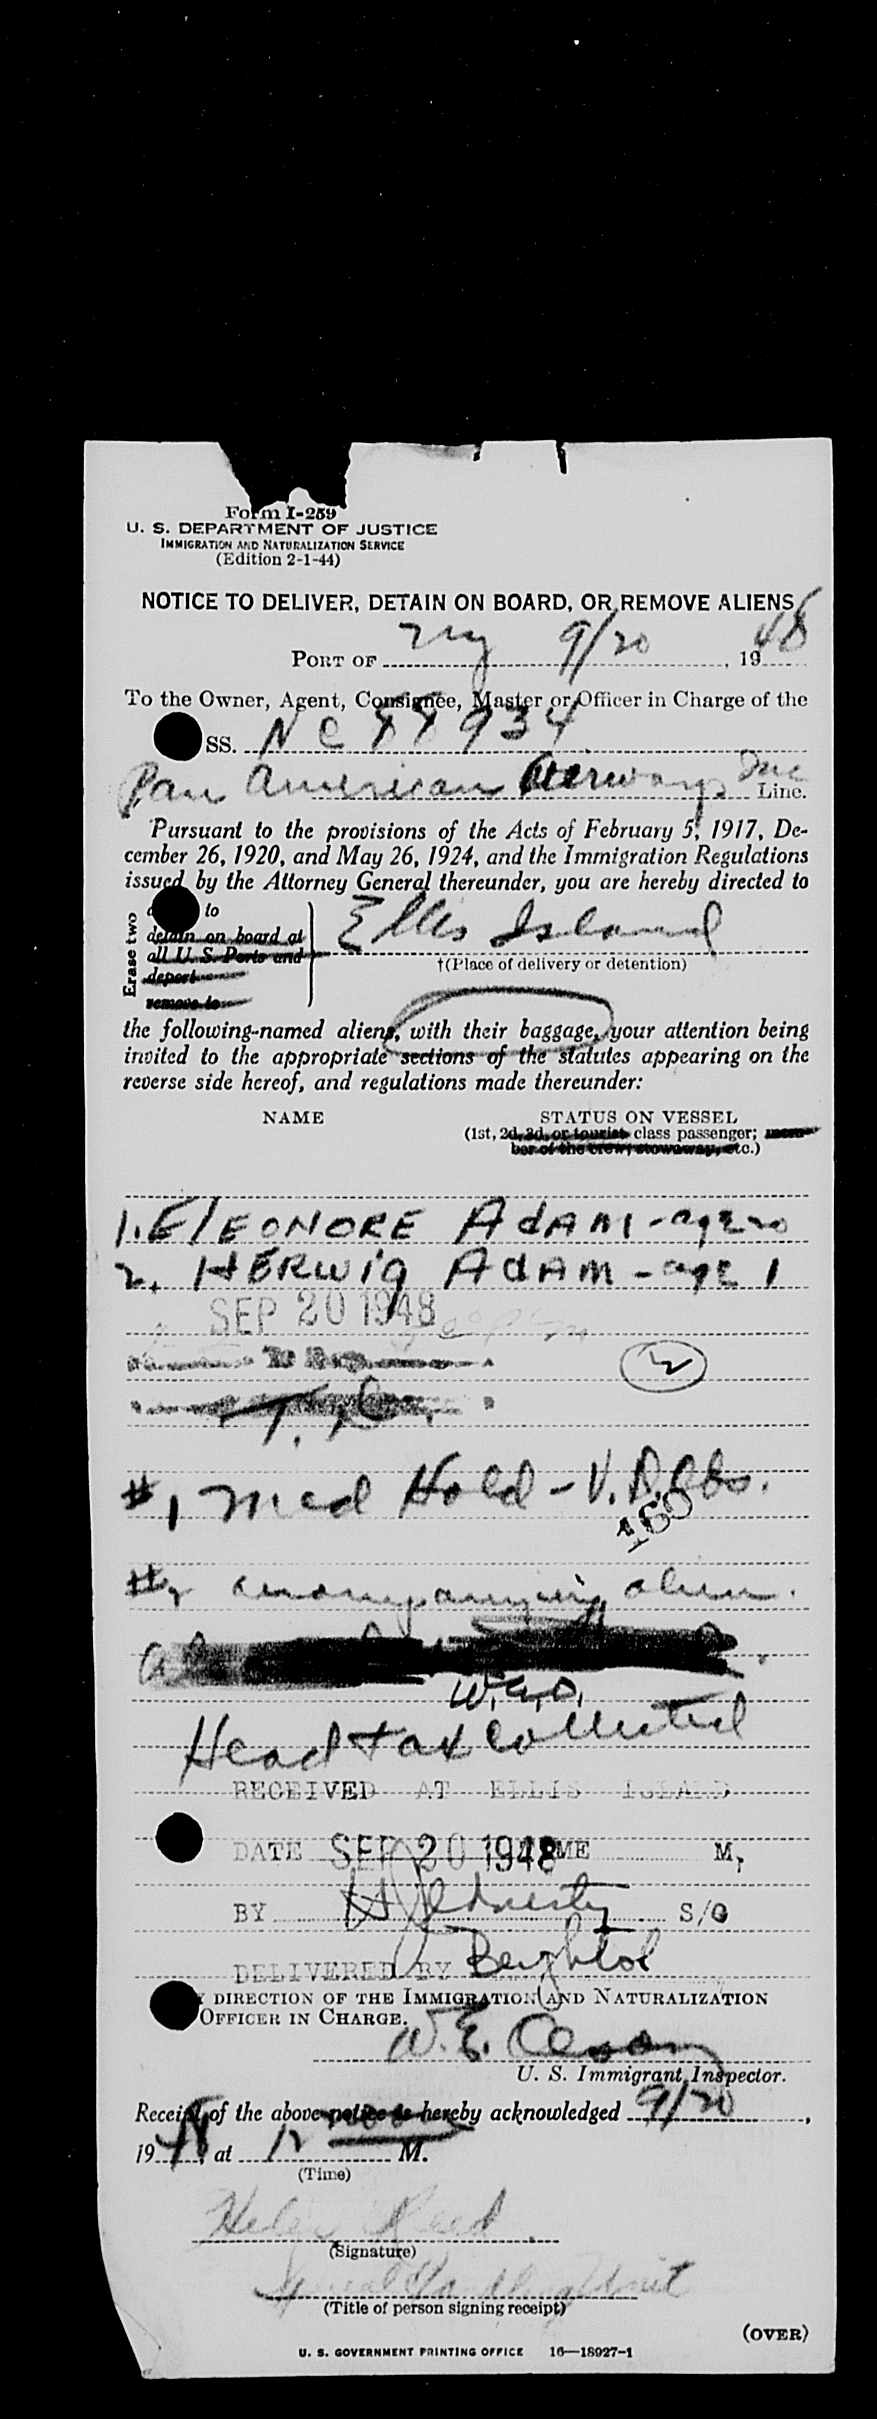 Form I-259
U. S. DEPARTMENT OF JUSTICE
IMMIGRATION AND NATURALIZATION SERVICE
(Edition 2-1-44)
NOTICE TO DELIVER, DETAIN ON BOARD, OR REMOVE ALIENS
PORT OF NY 9/20, 1948
To the Owner, Agent, Consignee, Master or Officer in Charge of the
SS. NC 88934
Pan American Airways Inc Line.
Pursuant to the provisions of the Acts of February 5, 1917, De-
cember 26, 1920, and May 26, 1924, and the Immigration Regulations
issued by the Attorney General thereunder, you are hereby directed to
Erase two
to
detain on board at
all U. S. Ports and
deport
remove to
Ellis Island
†(Place of delivery or detention)
the following-named aliens, with their baggage, your attention being
invited to the appropriate sections of the statutes appearing on the
reverse side hereof, and regulations made thereunder:
NAME STATUS ON VESSEL
(1st, 2d, 3d, or tourist class passenger; mem-
ber of the crew, stowaway, etc.)
1. ELEONORE ADAM - age 20
2. HERWIG ADAM - age 1
SEP 20 1948
2
#1 Med Hold - V.D. Obs.
160
#2 accompanying alien.
Head tax collected
RECEIVED AT ELLIS ISLAND
DATE SEP 20 1948 TIME M.
BY S/O
DELIVERED BY
DIRECTION OF THE IMMIGRATION AND NATURALIZATION
OFFICER IN CHARGE.
W. E.
U. S. Immigrant Inspector.
Receipt of the above notice is hereby acknowledged 9/20,
1948, at 12 M.
(Time)
Helen Reed
(Signature)
Special Handling Unit
(Title of person signing receipt)
(OVER)
U. S. GOVERNMENT PRINTING OFFICE 16—18927-1